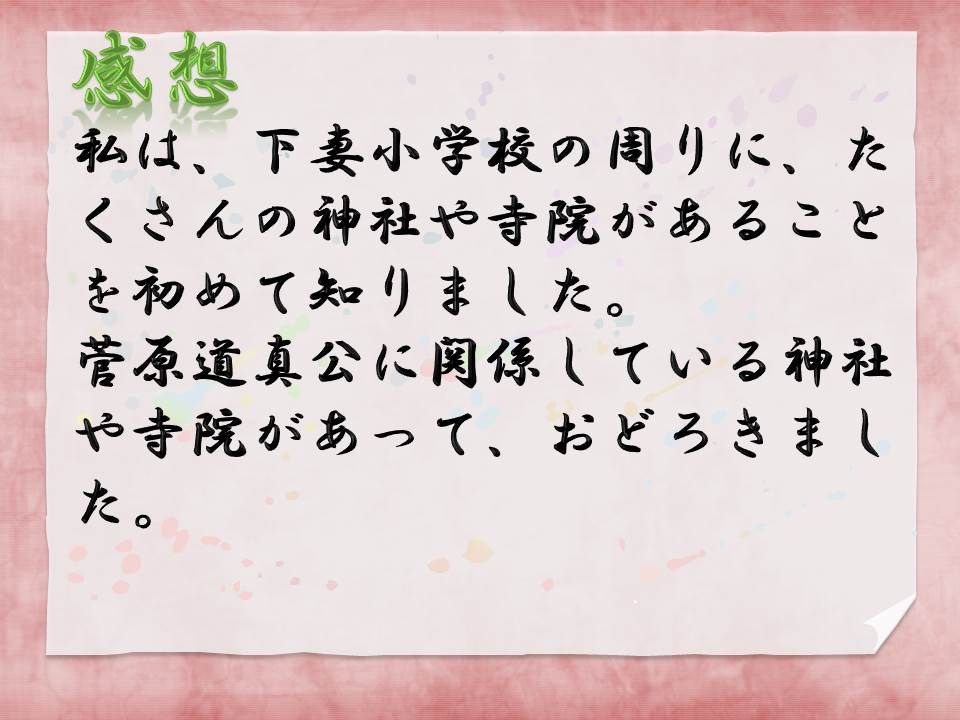 感想
私は、下妻小学校の周りに、た
くさんの神社や寺院があること
を初めて知りました。
菅原道真公に関係している神社
や寺院があって、おどろきまし
た。